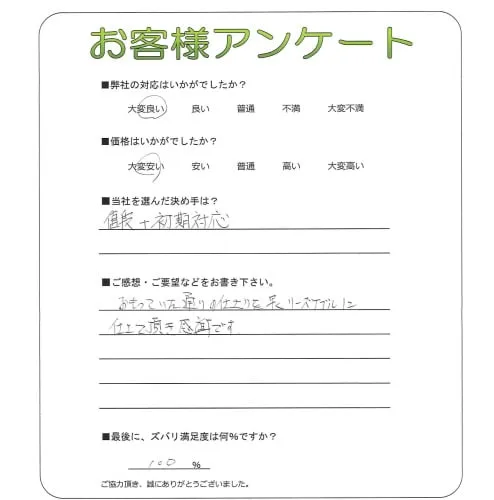 お客様アンケート
■弊社の対応はいかがでしたか？
大変良い 良い 普通 不満 大変不満
■価格はいかがでしたか？
大変安い 安い 普通 高い 大変高い
■当社を選んだ決め手は？
値段+初期対応
■ご感想・ご要望などをお書き下さい。
おもっていた通りの仕上りを リーズナブルに
仕上て頂き感謝です
■最後に、ズバリ満足度は何%ですか？
100 %
ご協力頂き、誠にありがとうございました。